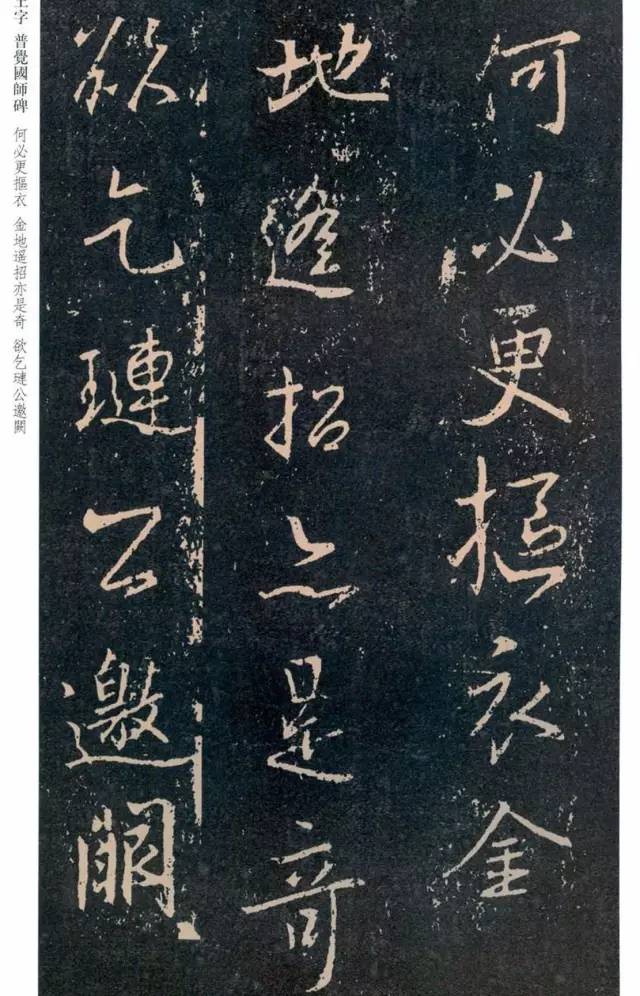 何必更摳衣金
地遥招亦是奇
欲乞璉公邀闕
王字 普覺國師碑 何必更摳衣 金地遥招亦是奇 欲乞璉公邀闕